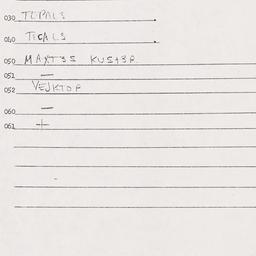 030 TOPALS
040 TICALS
050 MAXT35 KUS+3R
051 —
052 VEJKTOP
060 —
061 +